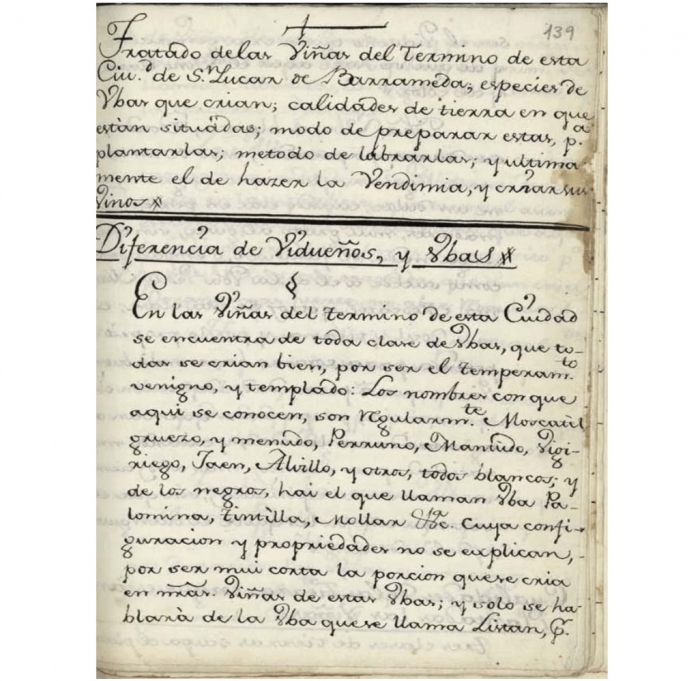 139
Tratado de las Viñas del Termino de esta
Ciu.d de S.n Lucar de Barrameda; especies de
Vbas que crian; calidades de tierra en que
estàn situadas; modo de preparar estas, p.a
plantarlas; metodo de labrarlas; y ultima-
mente el de hazer la Vendimia, y criar sus
Vinos
Diferencia de Vidueños, y Vbas
§
En las Viñas del termino de esta Cuidad
se encuentra de toda clase de Vbas, que to-
das se crian bien, por ser el temperam.to
venigno, y templado: Los nombres con que
aqui se conocen, son regularm.te Moscatèl
gruezo, y menudo, Perruno, Mantudo, Vigi-
riego, Jaen, Alvillo, y otros, todos blancos; y
de los negros, hai el que llaman Vba Pa-
lomina, tintilla, Mollar &c. Cuya confi-
guracion y propriedades no se explican,
por ser mui corta la porcion que se cria
en nrãs Viñas de estas Vbas; y solo se ha-
blarà de la Vba que se llama Listan, p.